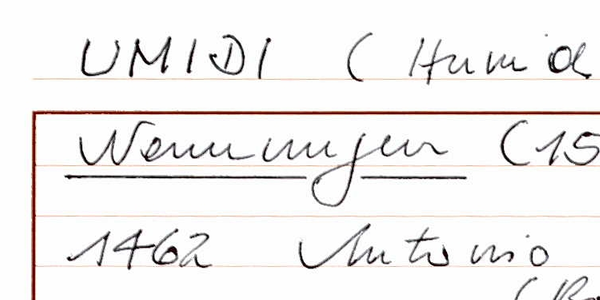 UMIDI (Humid
Nennungen (15
1462 Antonio
(Ro